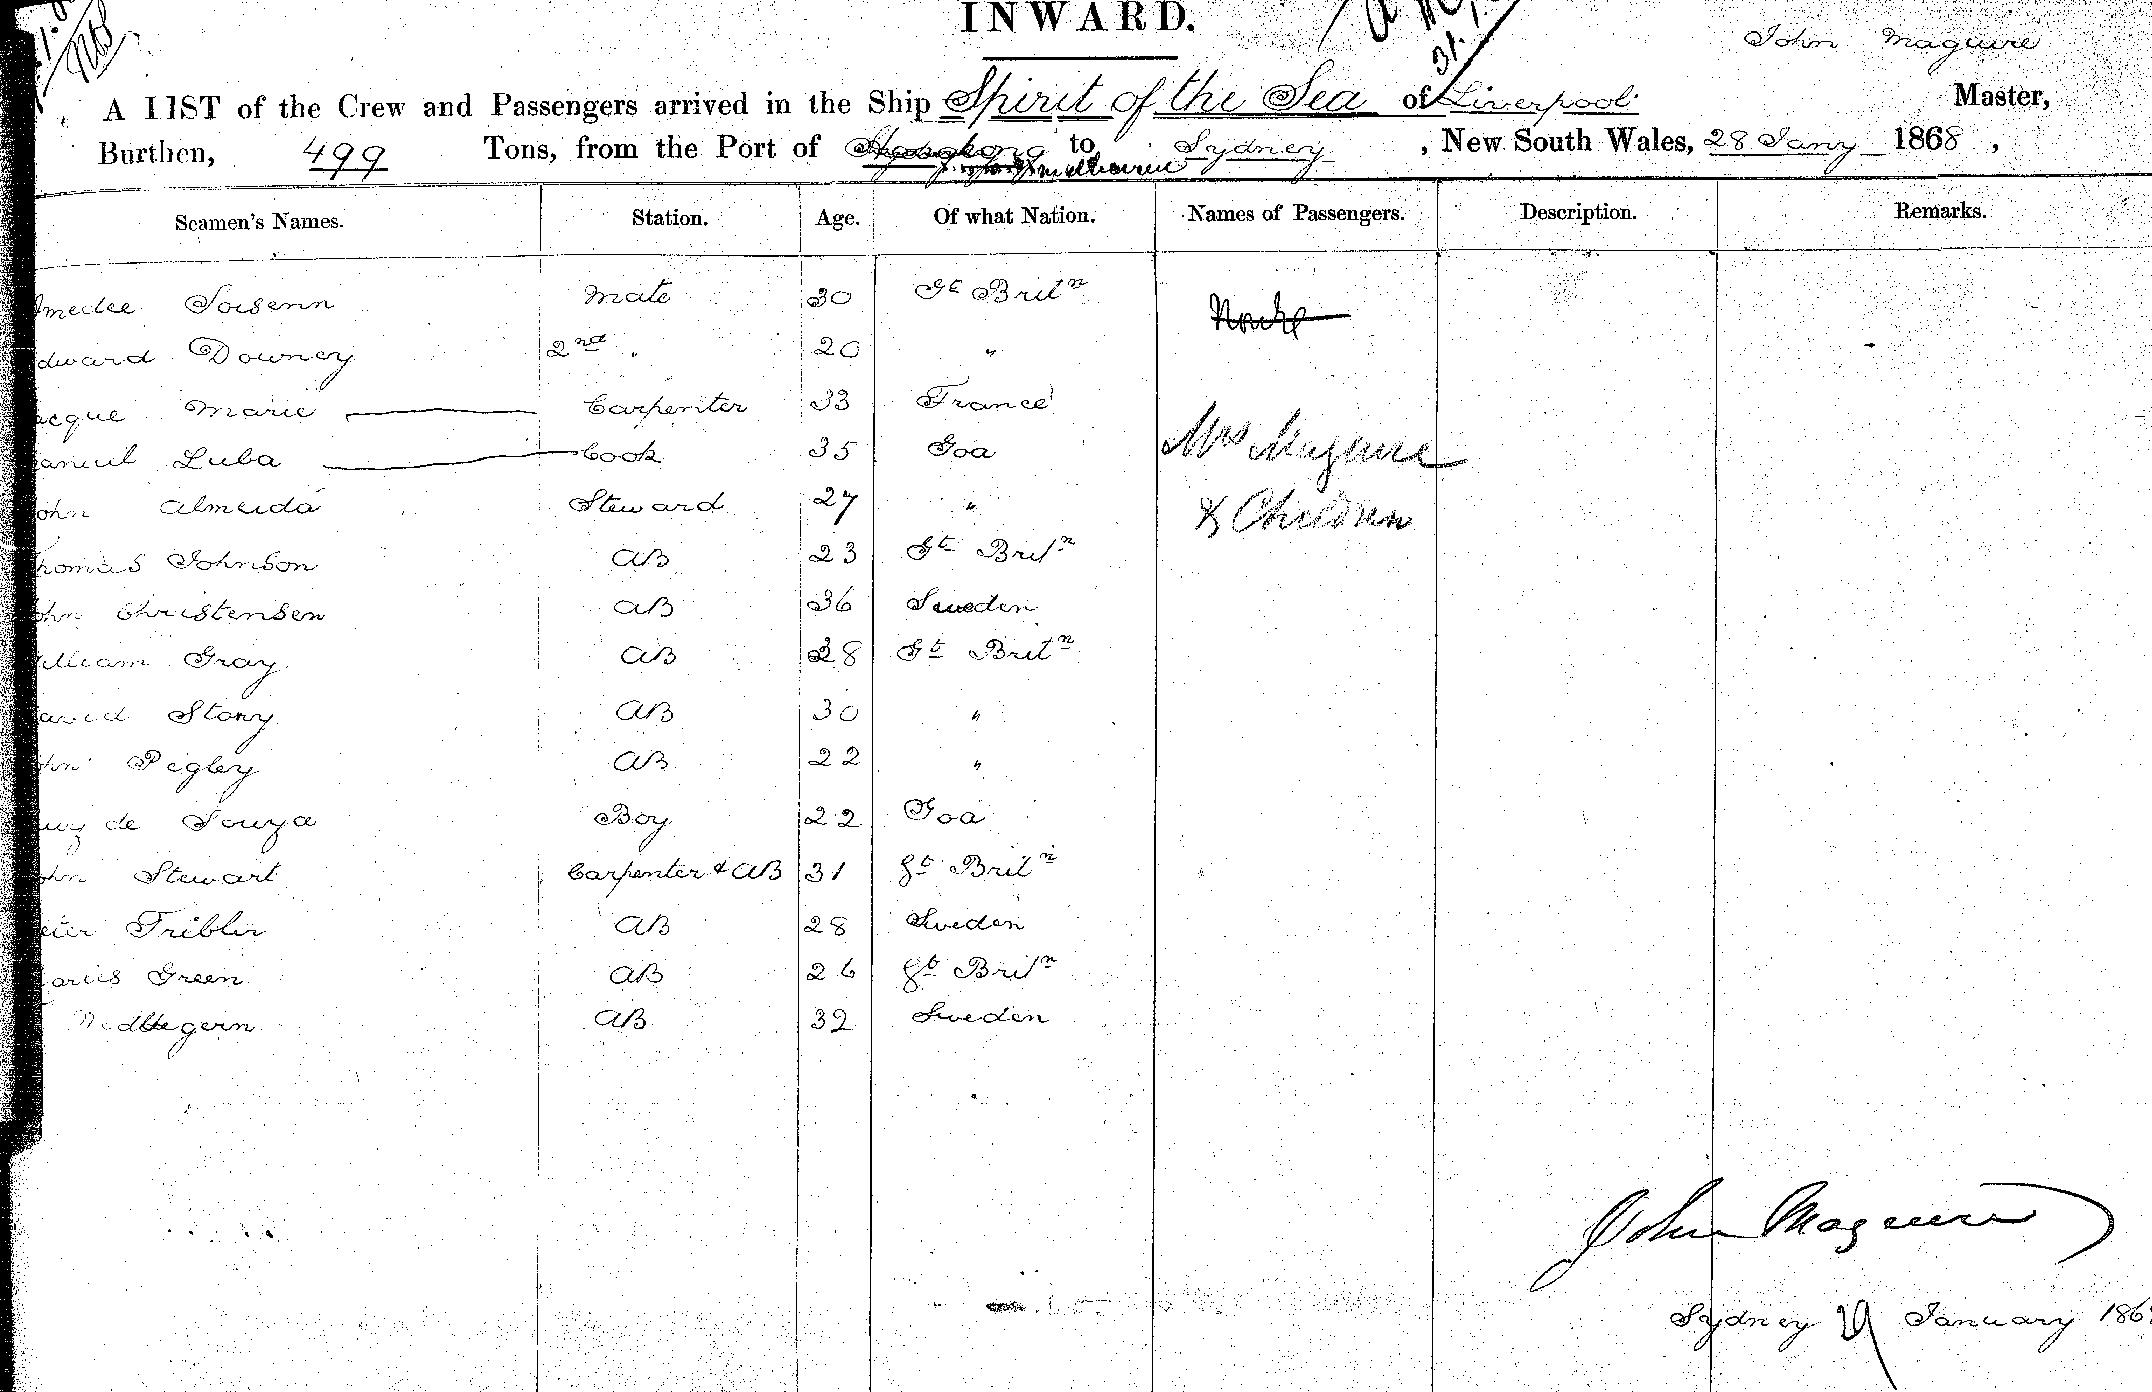 INWARD.
John Maguire
A LIST of the Crew and Passengers arrived in the Ship Spirit of the Sea of Liverpool Master,
Burthen, 499 Tons, from the Port of to Sydney, New South Wales, 28 Jany 1868,
Seamen's Names. Station. Age. Of what Nation. Names of Passengers. Description. Remarks.
medee Soisenn Mate 30 Gt Britn
dward Downey 2nd " 20 "
acque Marie Carpenter 33 France
Luba Cook 35 Goa Mrs Maguire
ohn Almeida Steward 27 " & Children
homas Johnson AB 23 Gt Britn
ohn Christensen AB 36 Sweden
illiam Gray AB 28 Gt Britn
avid Story AB 30 "
ohn Pegley AB 22 "
de Souza Boy 22 Goa
ohn Stewart Carpenter & AB 31 gt Britn
eter Tribler AB 28 Sweden
arles Green AB 26 gt Britn
AB 32 Sweden
John Maguire
Sydney January 186